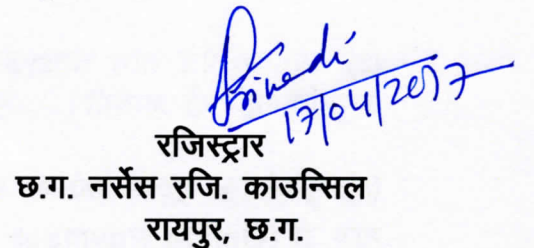 17/04/2017
रजिस्ट्रार
छ.ग. नर्सेस रजि. काउन्सिल
रायपुर, छ.ग.